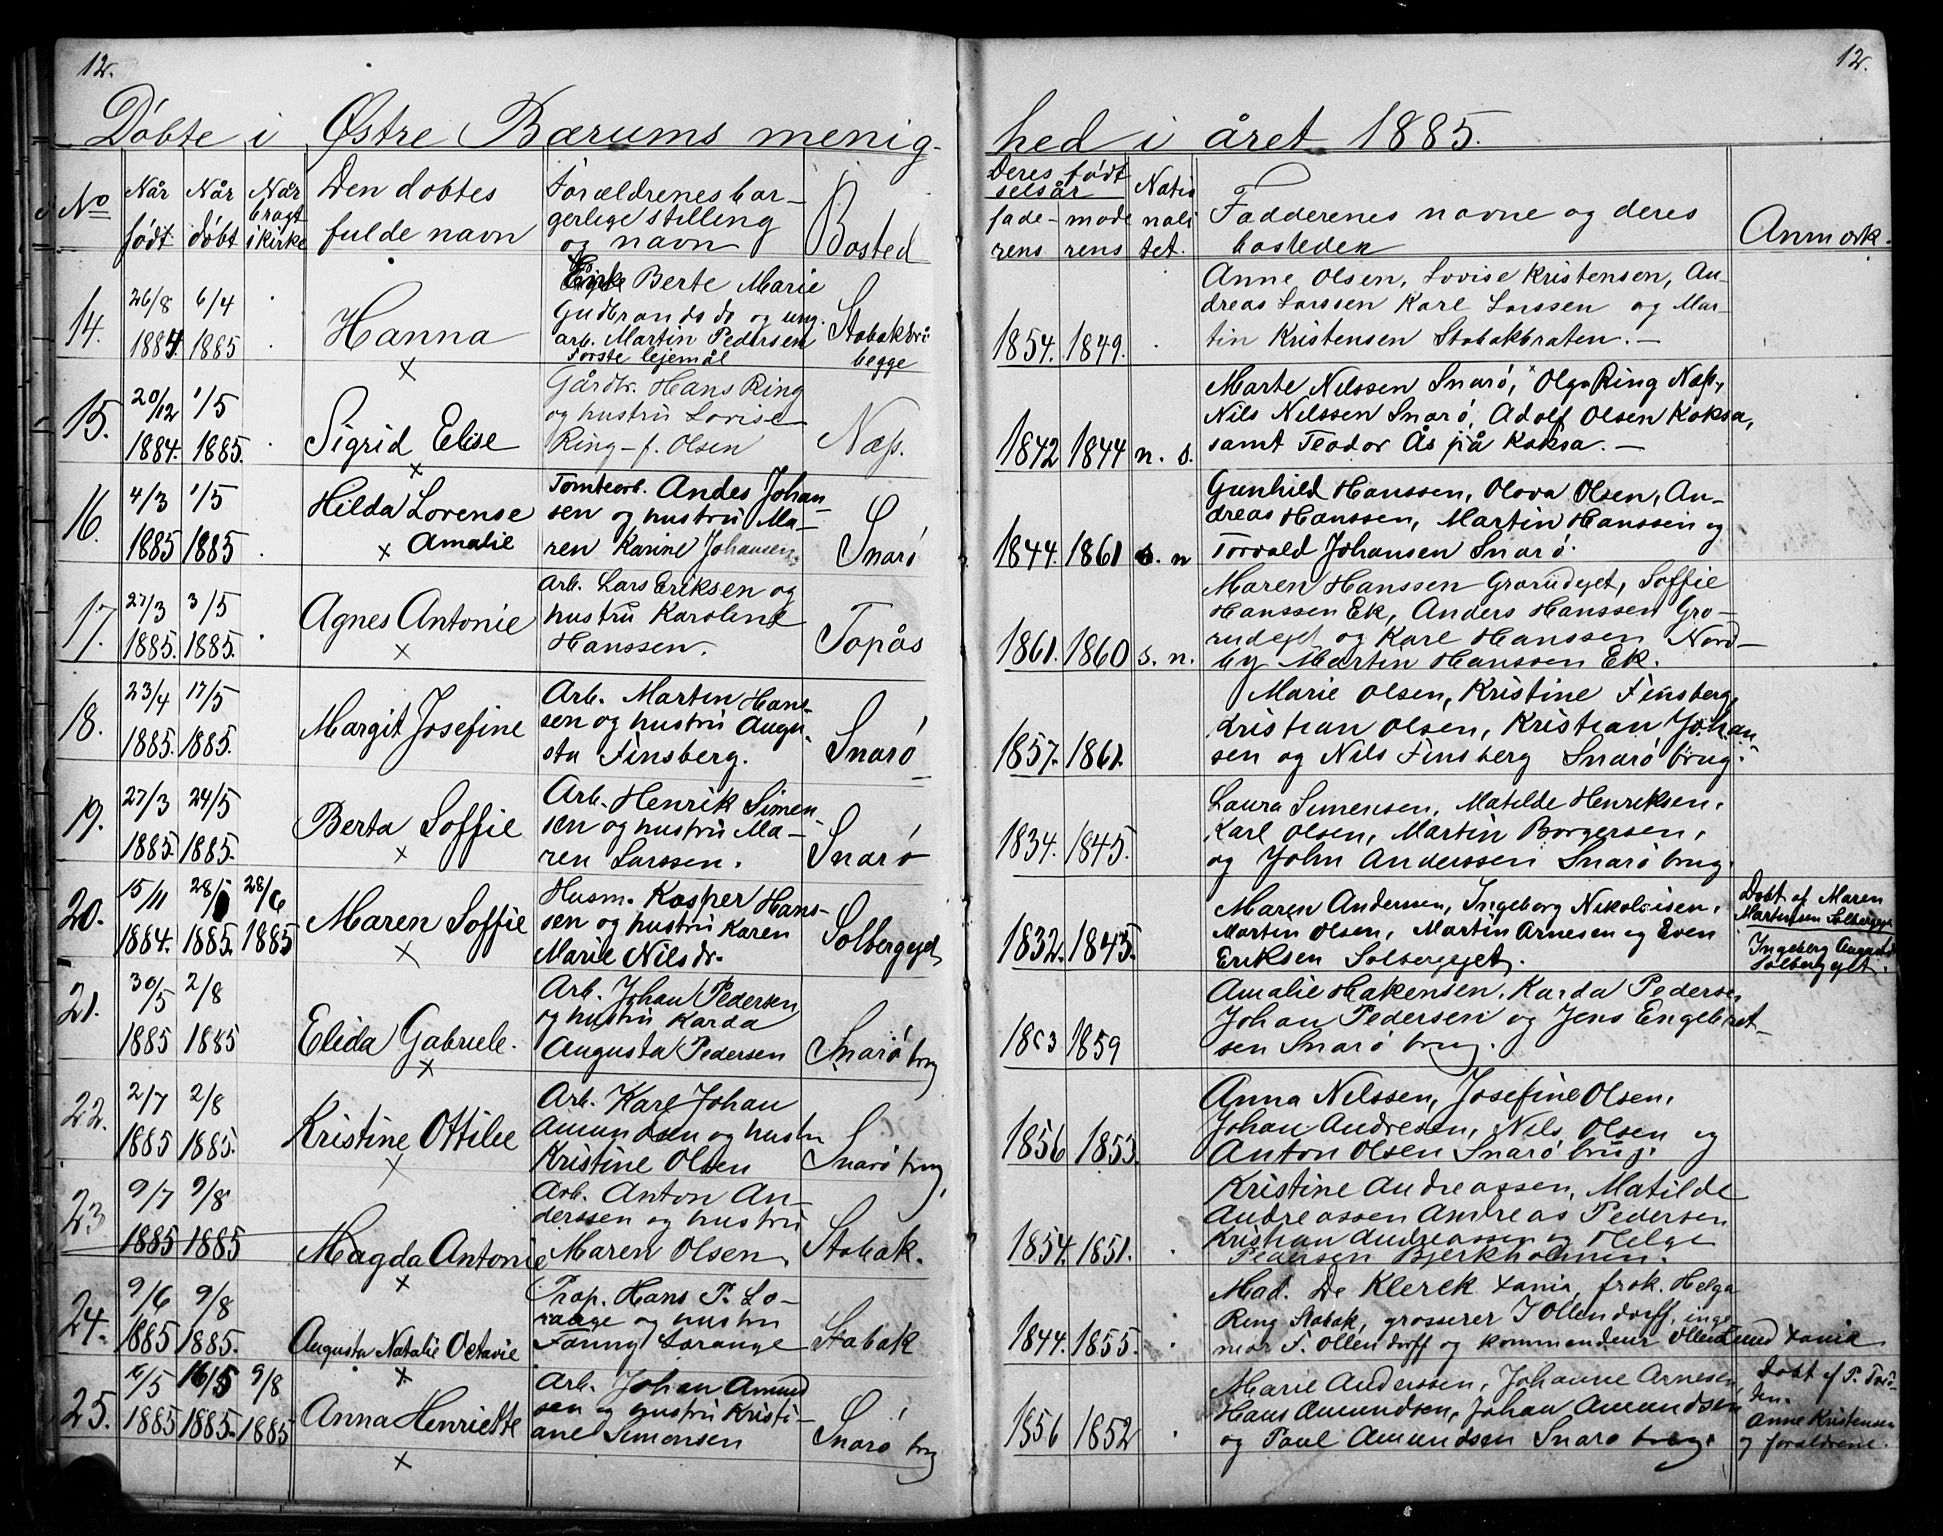 12.
Döbte i Østre Bærums menig-
No
Når
født
Når
döbt
Når
bragt
i kirke
Den dobtes
fulde navn
Forældrenes bor-
gerlige stilling
og navn
Bosted
14.
26/8
1884.
6/4
1885
Hanna
×
Enke Berte Marie
Gudbrandsd. og ung.
arb. Martin Pedersen
Første lejemål
begge
15.
20/12
1884.
1/5
1885.
Sigrid Elise
×
Gårdbr. Hans Ring
og hustru Lovise
Ring - f. Olsen
Næs.
16.
4/3
1885
1/5
1885
Hilda Lorense
× Amalie
Tomtearb. Andes Johan-
sen og hustru Ma-
ren Karine Johansen.
Snarö
17.
27/3
1885.
3/5
1885.
Agnes Antonie
×
Arb. Lars Eriksen og
hustru Karoline
Hanssen.
Topås
18.
23/4
1885.
17/5
1885.
Margit Josefine
Arb. Martin Hans-
sen og hustru Augu-
sta Finsberg.
Snarö
19.
27/3
1885.
24/5
1885.
Berta Soffie
×
Arb. Henrik Simen-
sen og hustru Ma-
ren Larssen.
Snarö
20.
15/11
1884.
1885.
28/6
1885
Maren Soffie
×
Husm. Kasper Hans-
sen og hustru Karen
Marie Nilsdr.
Solbergejet
21.
30/5
1885
2/8
1885
Elida Gabriele.
×
Arb. Johan Pedersen
og hustru Karda
Augusta Pedersen
Snarö brug
22.
2/7
1885
2/8
1885.
Kristine Ottilie
×
Arb. Karl Johan
Amundsen og hustru
Kristine Olsen
Snarö brug,
23
9/7
1885
9/8
1885
Magda Antonie
×
Arb. Anton An-
derssen og hustru
Maren Olsen.
Stabak.
24.
9/6
1885
9/8
1885.
Augusta Natalie Octavie
×
Prop. Hans P. Lo-
range og hustru
Fanny Lorange
Stabak
25.
1885
16/5
1885.
9/8
1885
Anna Henriette
×
Arb. Johan Amund
sen og hustru Kristi-
ane Simensen
Snarö brug
12.
hed i året 1885.
Deres födt
selsår
fade-
rens
mode
rens
Natio
nali
tet.
Fadderenes navne og deres
bosteder
Anmærk.
1854. 1849.
Anne Olsen, Lovise Kristensen, An-
dreas Larssen Karl Larssen og Mar-
tin Kristensen Stabakbraten. -
1842 1844 n. s.
Marte Nilssen Snarö, Olga Ring Næs,
Nils Nilssen Snarö, Adolf Olsen Koksa,
samt Teodor Ås på Koksa. -
1844. 1861 s. n
Gunhild Hanssen, Olova Olsen, An-
dreas Hanssen, Martin Hanssen og
Torvald Johansen Snarö.
1861. 1860 s. n.
Maren Hanssen Grorudejet, Soffie
Hanssen Ek, Anders Hanssen Gro-
rudejet og Karl Hanssen Nord-
by Martin Hanssen Ek.
1857. 1861.
Marie Olsen, Kristine Finsberg,
Kristian Olsen, Kristian Johan-
sen og Nils Finsberg Snarö brug.
1834. 1845.
Laura Simensen, Matilde Henriksen,
Karl Olsen, Martin Borgersen,
og John Anderssen Snarö brug.
1832. 1845.
Maren Andersen, Ingeborg Nikolaisen,
Martin Olsen, Martin Arnesen og Even
Eriksen Solbergejet.
Dobt af Maren
Martinsen Solbergejet
Ingeborg
Solbergejet.
1859
Amalie Hakensen, Karda Pedersen
Johan Pedersen og Jens Engebret-
sen Snarö brug.
1856 1853.
Anna Nilssen, Josefine Olsen,
Johan Andresen, Nils Olsen og
Anton Olsen Snarö brug.
1854. 1851.
Kristine Andreassen, Matilde
Andreassen Andreas Pedersen
Kristian Andreassen og Helge
Pedersen Bjerkholmen.
1844. 1855.
Mad. De Klerck Xania, frøk. Helga
Ring Stabak, grosserer J Ollendorff, inge
niør F. Ollendorff og kommandeur Ollendorff Xania
1856 1852
Marie Anderssen, Johanne Arnesen
Hans Amundsen, Johan Amundsen
og Paul Amundsen Snarö brug.
Dobt af P.
Anne Kristensen
og foraldrene.